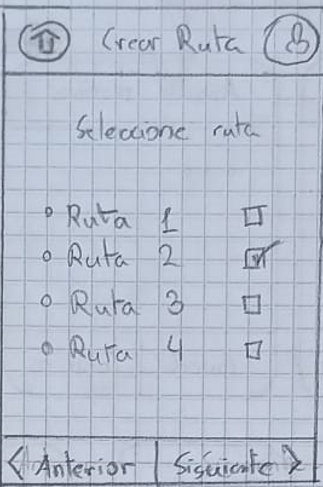 Crear Ruta
Seleccione ruta
Ruta 1
Ruta 2
Ruta 3
Ruta 4
Anterior Siguiente